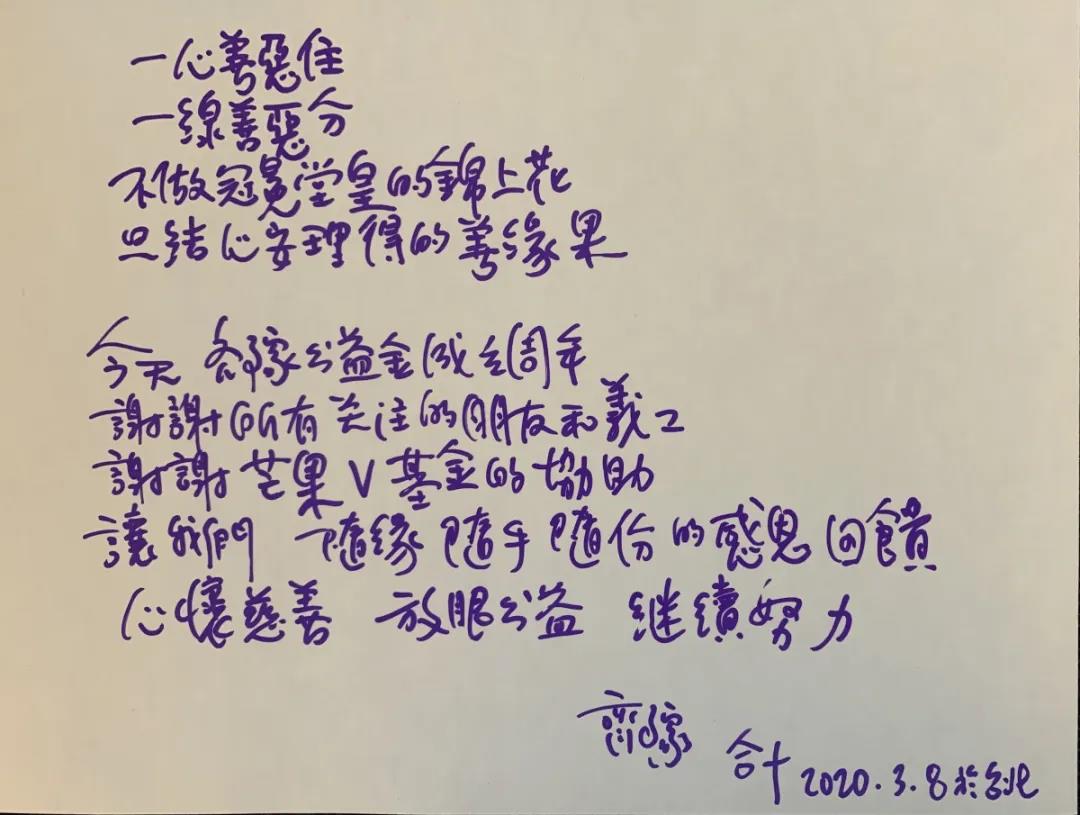 一心善惡住
一線善惡分
不做冠冕堂皇的錦上花
只結心安理得的善緣果
今天 齐豫公益金成立周年
謝謝所有关注的朋友和義工
謝謝芒果V基金的協助
讓我們 隨緣 隨手 隨份的感恩回饋
心懷慈善 放眼公益 继續努力
齊豫 合十 2020.3.8於台北